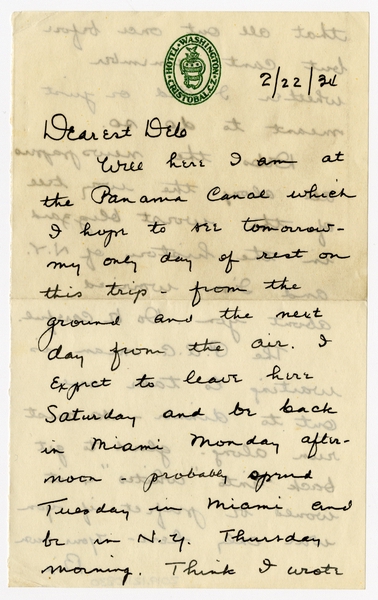 HOTEL WASHINGTON
CRISTOBAL, C.Z.
2/22/34
Dearest Deb
Well here I am at
the Panama Canal which
I hope to see tomorrow-
my only day of rest on
this trip - from the
ground and the next
day from the air. I
expect to leave here
Saturday and be back
in Miami Monday after-
noon - probably spend
Tuesday in Miami and
be in N.Y. Thursday
morning. Think I wrote